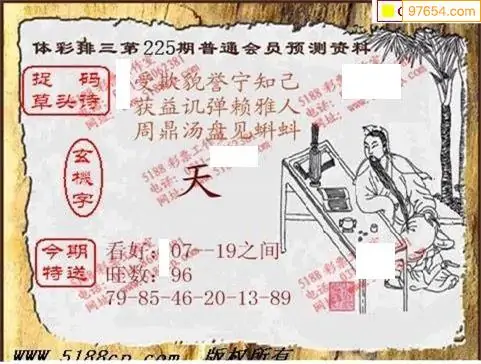 97654.com
体彩排三第225期普通会员预测资料
捉码
草头诗
受欺貌誉宁知己
获益讥弹赖雅人
周鼎汤盘见蝌蚪
玄機字
天
今期
特送
看好:07--19之间
旺数:96
79-85-46-20-13-89
www.5188cp.com 版权所有